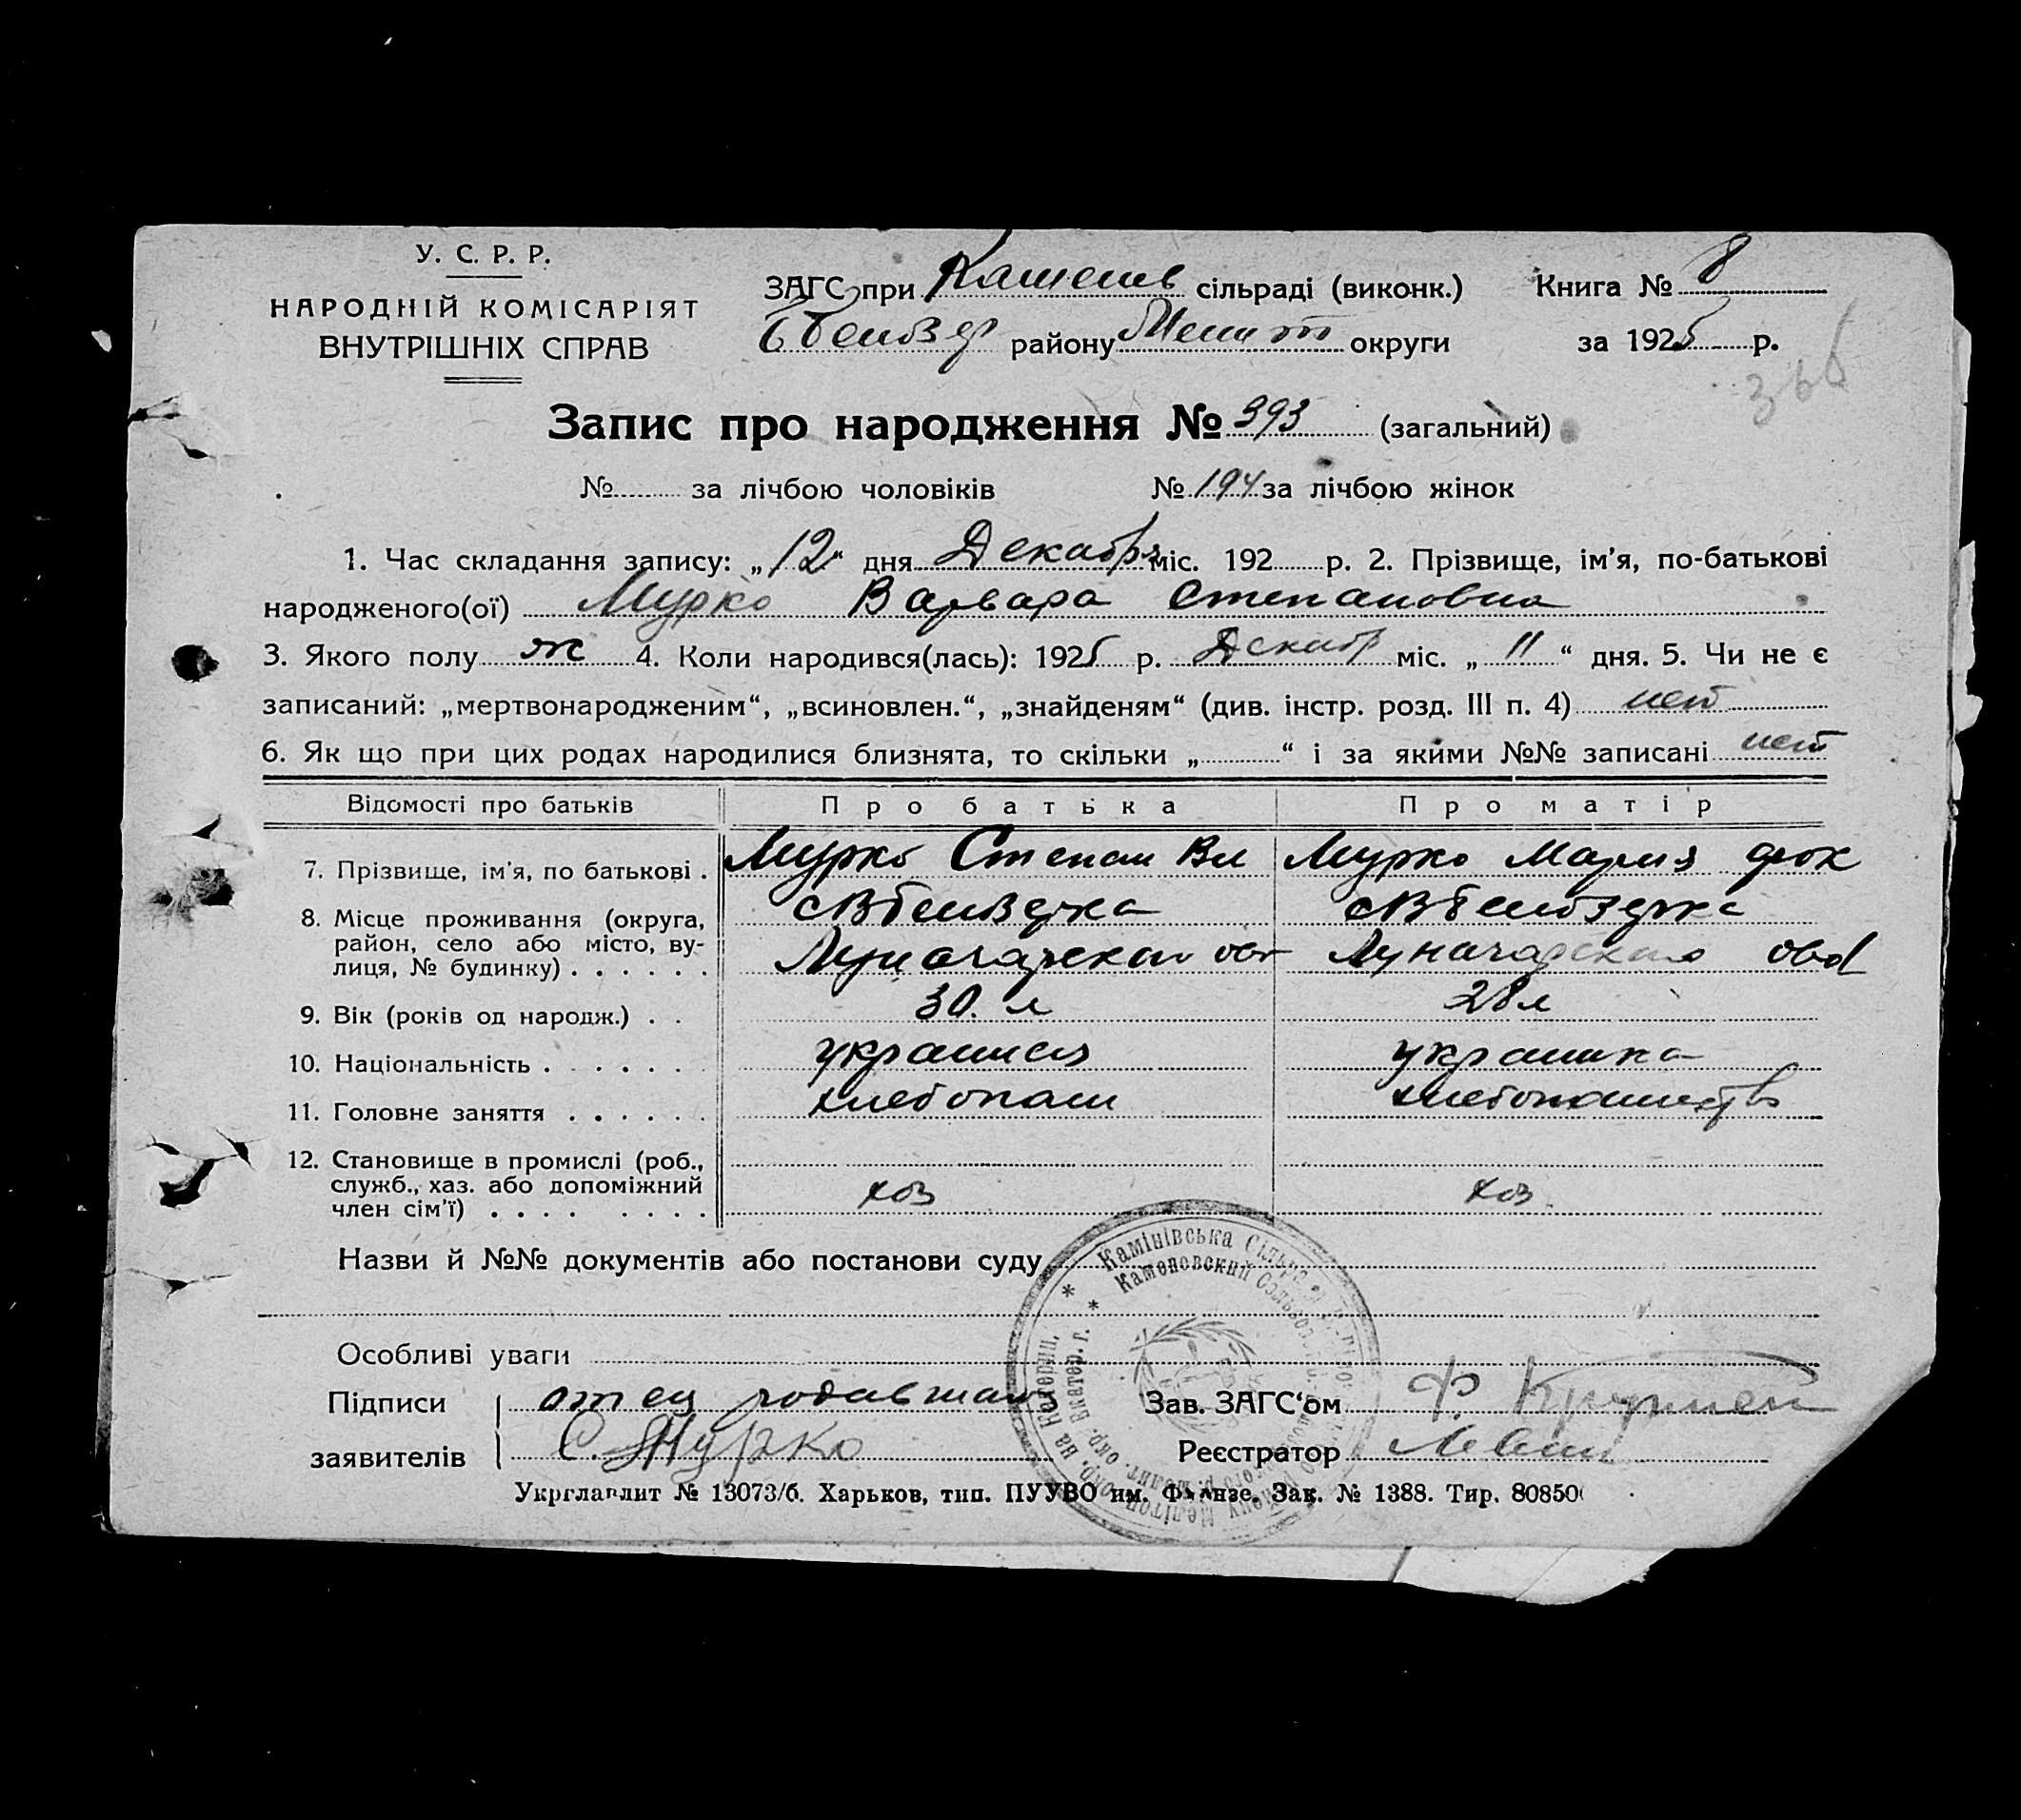 У. С. Р. Р.
НАРОДНІЙ КОМІСАРІЯТ
ВНУТРІШНІХ СПРАВ
ЗАГС при сільраді (виконк.) Книга № 8
району Мелит округи за 1925 р.
366
Запис про народження № 393 (загальний)
№ за лічбою чоловіків № 194 за лічбою жінок
1. Час складання запису: „12“ дня Декабря міс. 192 р. 2. Прізвище, ім'я, по-батькові
народженого(ої) Мурко Варвара Степановна
3. Якого полу ж 4. Коли народився(лась): 1925 р. Декабр міс. „11“ дня. 5. Чи не є
записаний: „мертвонародженим“, „всиновлен.“, „знайденям“ (див. інстр. розд. III п. 4) нет
6. Як що при цих родах народилися близнята, то скільки „ “ і за якими №№ записані нет
Відомості про батьків Про батька Про матір
7. Прізвище, ім'я, по батькові . Мурко Степан Вл Мурко Мария фок
8. Місце проживання (округа,
район, село або місто, ву-
лиця, № будинку) . . . . . .
9. Вік (років од народж.) . . 30. л 28 л
10. Національність . . . . . . . украинец украинка
11. Головне заняття . . . . . . хлебопаш хлебопашество
12. Становище в промислі (роб.,
служб., хаз. або допоміжний
член сім'ї) . . . . . . . . хоз хоз.
Назви й №№ документів або постанови суду
Камінівська
Каменовский
Особливі уваги
Підписи отец
заявителів С. Мурко
Зав. ЗАГС'ом Ф.
Реєстратор
Укрглавлит № 13073/б. Харьков, тип. ПУУВО им. Фрунзе. Зак. № 1388. Тир. 80850